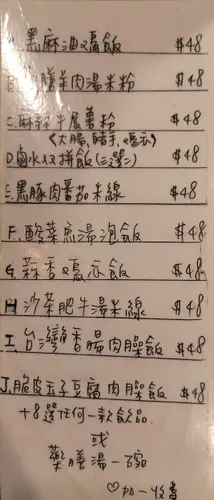 A.黑麻油双窩飯 $48
B.藥膳羊肉湯米粉 $48
C.麻辣牛展薯粉 $48
(大腸,豬手,
D.鹵水双拼飯(三選二) $48
E.黑豚肉番茄米線 $48
F.酸菜魚湯泡飯 $48
G.蒜香 飯 $48
H.沙茶肥牛湯米線 $48
I.台灣香腸肉臊飯 $48
J.脆皮玉子豆腐肉臊飯 $48
+8選任何一款飲品
或
藥膳湯一碗
♡加一收費